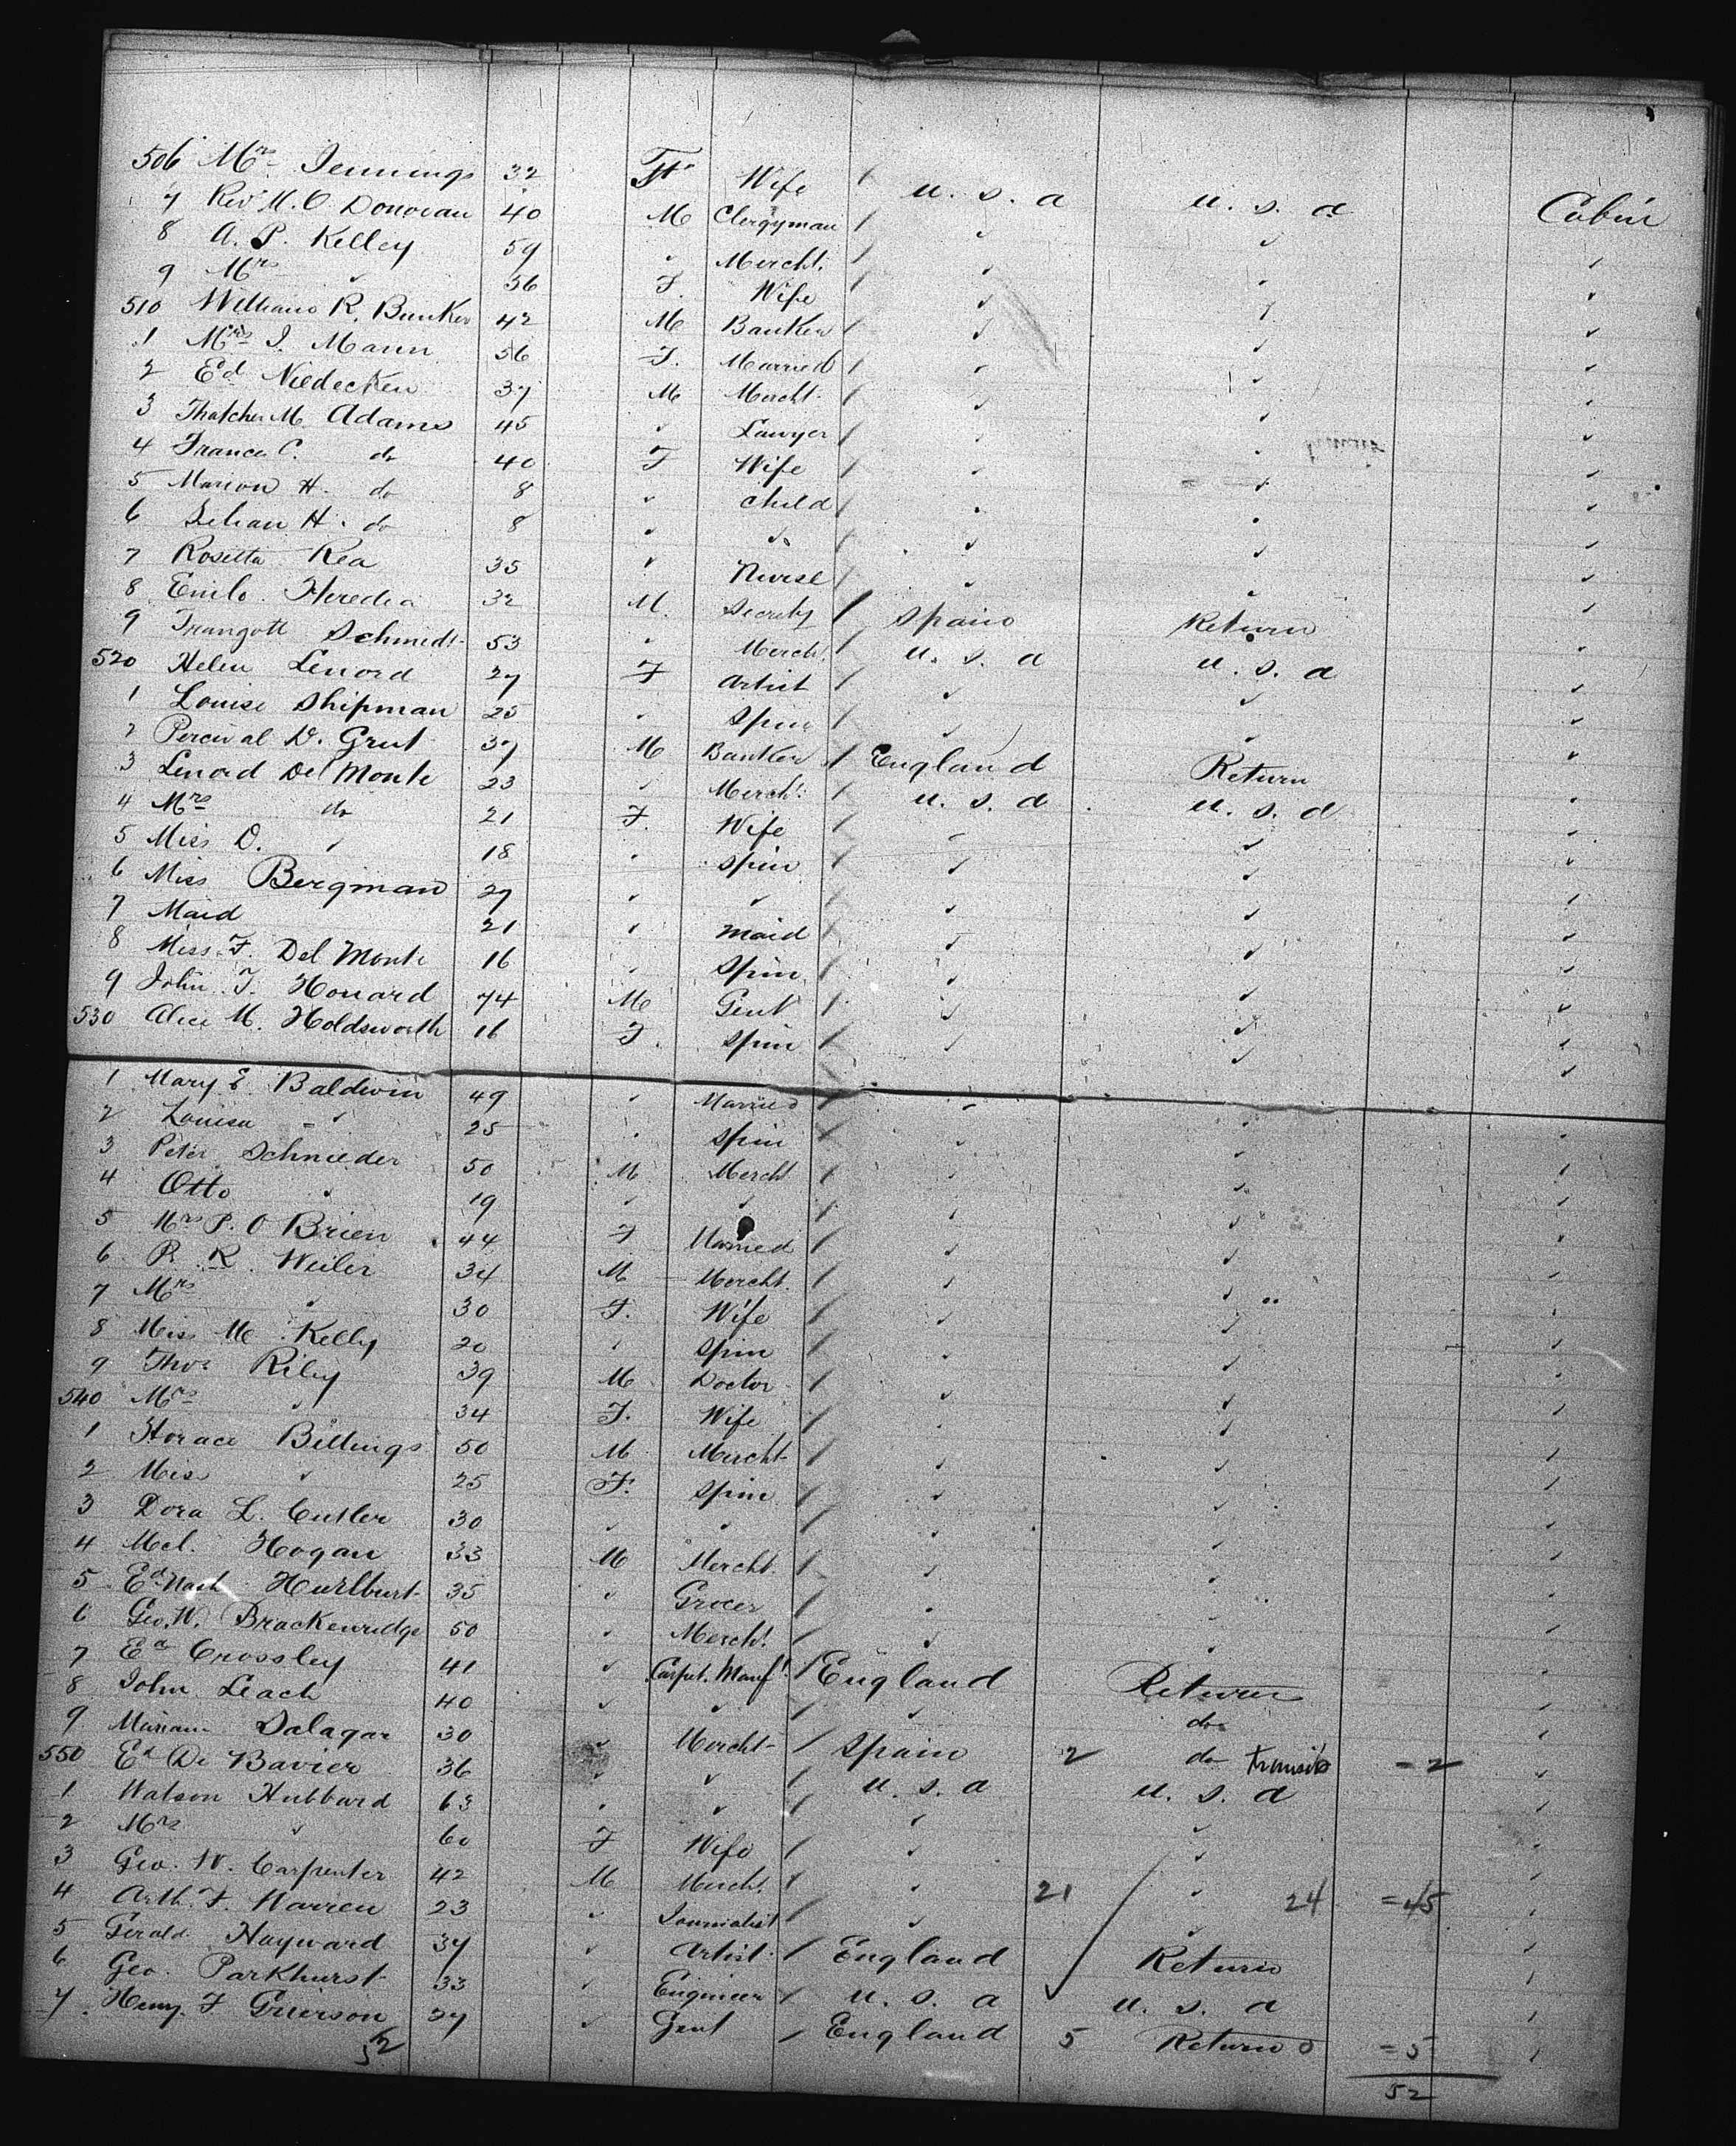 506 Mrs Jennings 32 F Wife / U. S. A U. S. A Cabin
7 Rev M. O Donovan 40 M Clergyman / ✓ ✓ ✓
8 A. P. Kelley 59 ✓ Mercht. / ✓ ✓ ✓
9 Mrs ✓ 56 F. Wife / ✓ ✓ ✓
510 William R. Bunker 42 M Banker / ✓ ✓ ✓
1 Mrs J. Mann 56 F. Married / ✓ ✓ ✓
2 Ed Niedecken 37 M Mercht. / ✓ ✓ ✓
3 Thatcher M. Adams 45 ✓ Lawyer / ✓ ✓ ✓
4 Frances C. do 40 F Wife / ✓ ✓ ✓
5 Marion H. do 8 ✓ Child / ✓ ✓ ✓
6 Lilian H. do 8 ✓ ✓ / ✓ ✓ ✓
7 Rosetta Rea 35 ✓ Nurse / ✓ ✓ ✓
8 Emilo Heredia 32 M. Secrety / Spain Return ✓
9 Traugott Schmidt 53 ✓ Mercht. / U. S. A U. S. A ✓
520 Helen Lenord 27 F Artist / ✓ ✓ ✓
1 Louise Shipman 25 ✓ Spin / ✓ ✓ ✓
2 Percival D. Grut 37 M Banker / England Return ✓
3 Lenord Del Monte 23 ✓ Mercht. / U. S. A U. S. A ✓
4 Mrs do 21 F. Wife / ✓ ✓ ✓
5 Miss D. ✓ 18 ✓ Spin / ✓ ✓ ✓
6 Miss Bergman 27 ✓ ✓ / ✓ ✓ ✓
7 Maid 21 ✓ Maid / ✓ ✓ ✓
8 Miss F. Del Monte 16 ✓ Spin / ✓ ✓ ✓
9 John T. Howard 74 M Gent / ✓ ✓ ✓
530 Alice M. Holdsworth 16 F. Spin / ✓ ✓ ✓
1 Mary E. Baldwin 49 ✓ Married / ✓ ✓ ✓
2 Louisa ✓ 25 ✓ Spin / ✓ ✓ ✓
3 Peter Schnieder 50 M Mercht / ✓ ✓ ✓
4 Otto ✓ 19 ✓ ✓ / ✓ ✓ ✓
5 Mrs P. O Brien 44 F Married / ✓ ✓ ✓
6 P. R. Weiler 34 M Mercht. / ✓ ✓ ✓
7 Mrs ✓ 30 F. Wife / ✓ ✓ ✓
8 Miss M Kelly 20 ✓ Spin / ✓ ✓ ✓
9 Thos Riley 39 M Doctor / ✓ ✓ ✓
540 Mrs ✓ 34 F. Wife / ✓ ✓ ✓
1 Horace Billings 50 M Mercht / ✓ ✓ ✓
2 Miss ✓ 25 F. Spin / ✓ ✓ ✓
3 Dora L. Cutler 30 ✓ ✓ / ✓ ✓ ✓
4 Mcl. Hogan 33 M Mercht. / ✓ ✓ ✓
5 Ed Nash Hurlburt 35 ✓ Grocer / ✓ ✓ ✓
6 Geo. W. Brackenridge 50 ✓ Mercht. / ✓ ✓ ✓
7 Ed Crossley 41 ✓ Carpet. Manf. / England Return ✓
8 John Leach 40 ✓ ✓ / ✓ do ✓
9 Mariano Salagar 30 ✓ Mercht / Spain 2 do transit = 2 ✓
550 Ed De Bavier 36 ✓ ✓ / U. S. A U. S. A ✓
1 Watson Hubbard 63 ✓ ✓ / ✓ ✓ ✓
2 Mrs ✓ 60 F Wife / ✓ ✓ ✓
3 Geo. W. Carpenter 42 M Mercht. / ✓ 21 ✓ 24 = 45 ✓
4 Arth. F. Warren 23 ✓ Journalist / ✓ ✓ ✓
5 Gerald Hayward 37 ✓ Artist. / England Return ✓
6 Geo. Parkhurst 33 ✓ Engineer / U. S. A U. S. A ✓
7 Heny. F Grierson 27 ✓ Gent / England 5 Return = 5 ✓
52 52